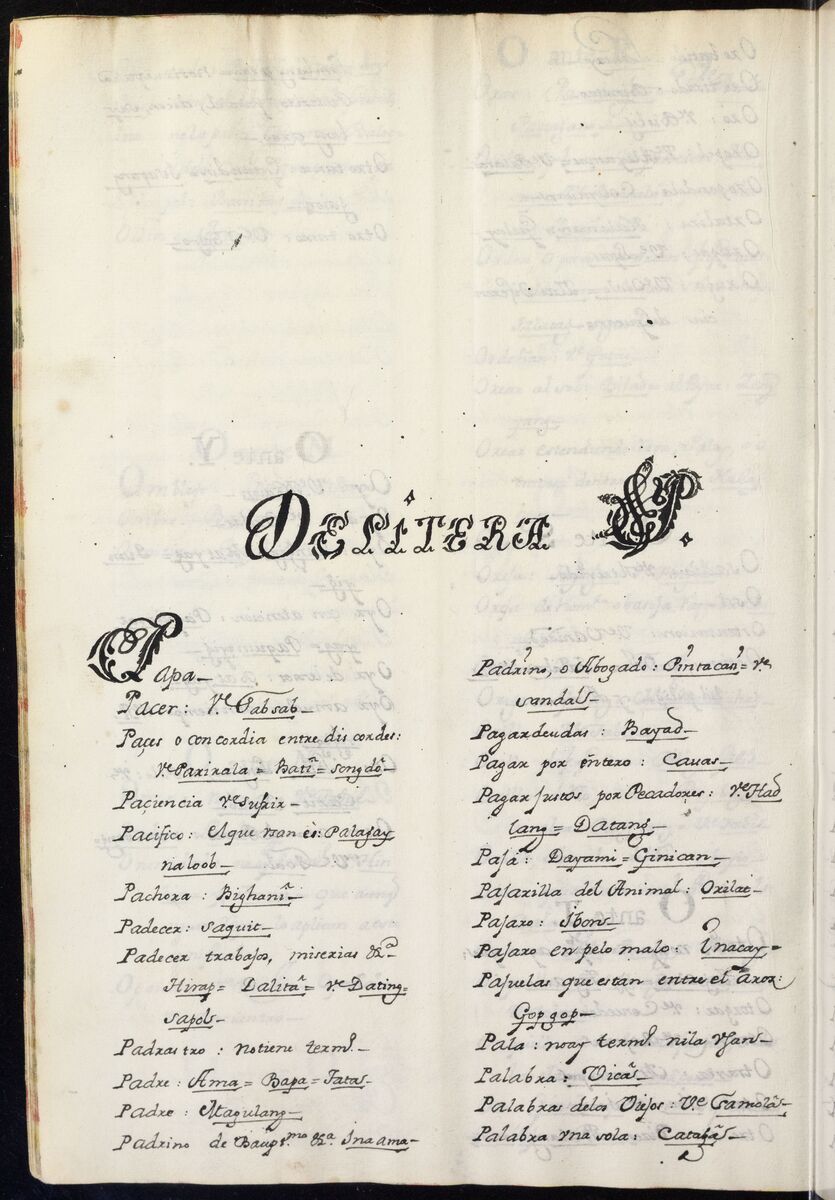 DE LITERA P.
Papa_
Pacer: Ve. Tabsab_
Paçes o concordia entre discordes:
Ve Parirala = Batî = songdô_
Paçiencia Ve sufrir_
Pacifico: el que usan ès: Palagay
na loob_
Pachora: Bighanî_
Padecer: saquit_
Padecer trabajos, miserias &a_
Hirap = Dalitâ = Ve Dating =
sapol_
Padrastro: no tiene termo._
Padre: Ama = Bapa = Tatas_
Padre: Magulang_
Padrino de Baupt.mo &a. Inaama_
Padrino, o Abogado: Pintacasi = Ve
sandal_
Pagar deudas: Bayad_
Pagar por entero: Cauas_
Pagar Justos por Pecadores: Ve Had
lang = Datang_
Paja: Dayami = Ginican_
Pajarilla del Animal:
Pajaro: Ibon_
Pajaro en pelo malo: Inacay =
Pajuelas que estan entre el Arroz:
Gopgop_
Pala: no ay termo. ni la Usan_
Palabra: Vicâ_
Palabras de los Viejos: Ve Tamolâ_
Palabra una sola: Catagâ_